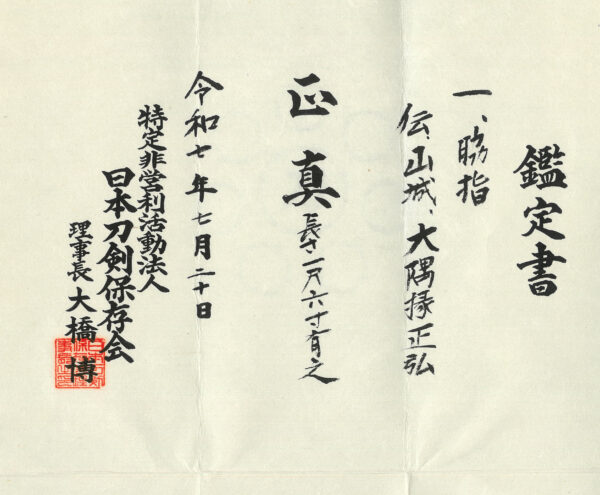 鑑定書
一、脇指
伝、山城、大隅掾正弘
正真 長サ一尺六寸有之
令和七年七月二十日
特定非営利活動法人
日本刀剣保存会
理事長 大橋博